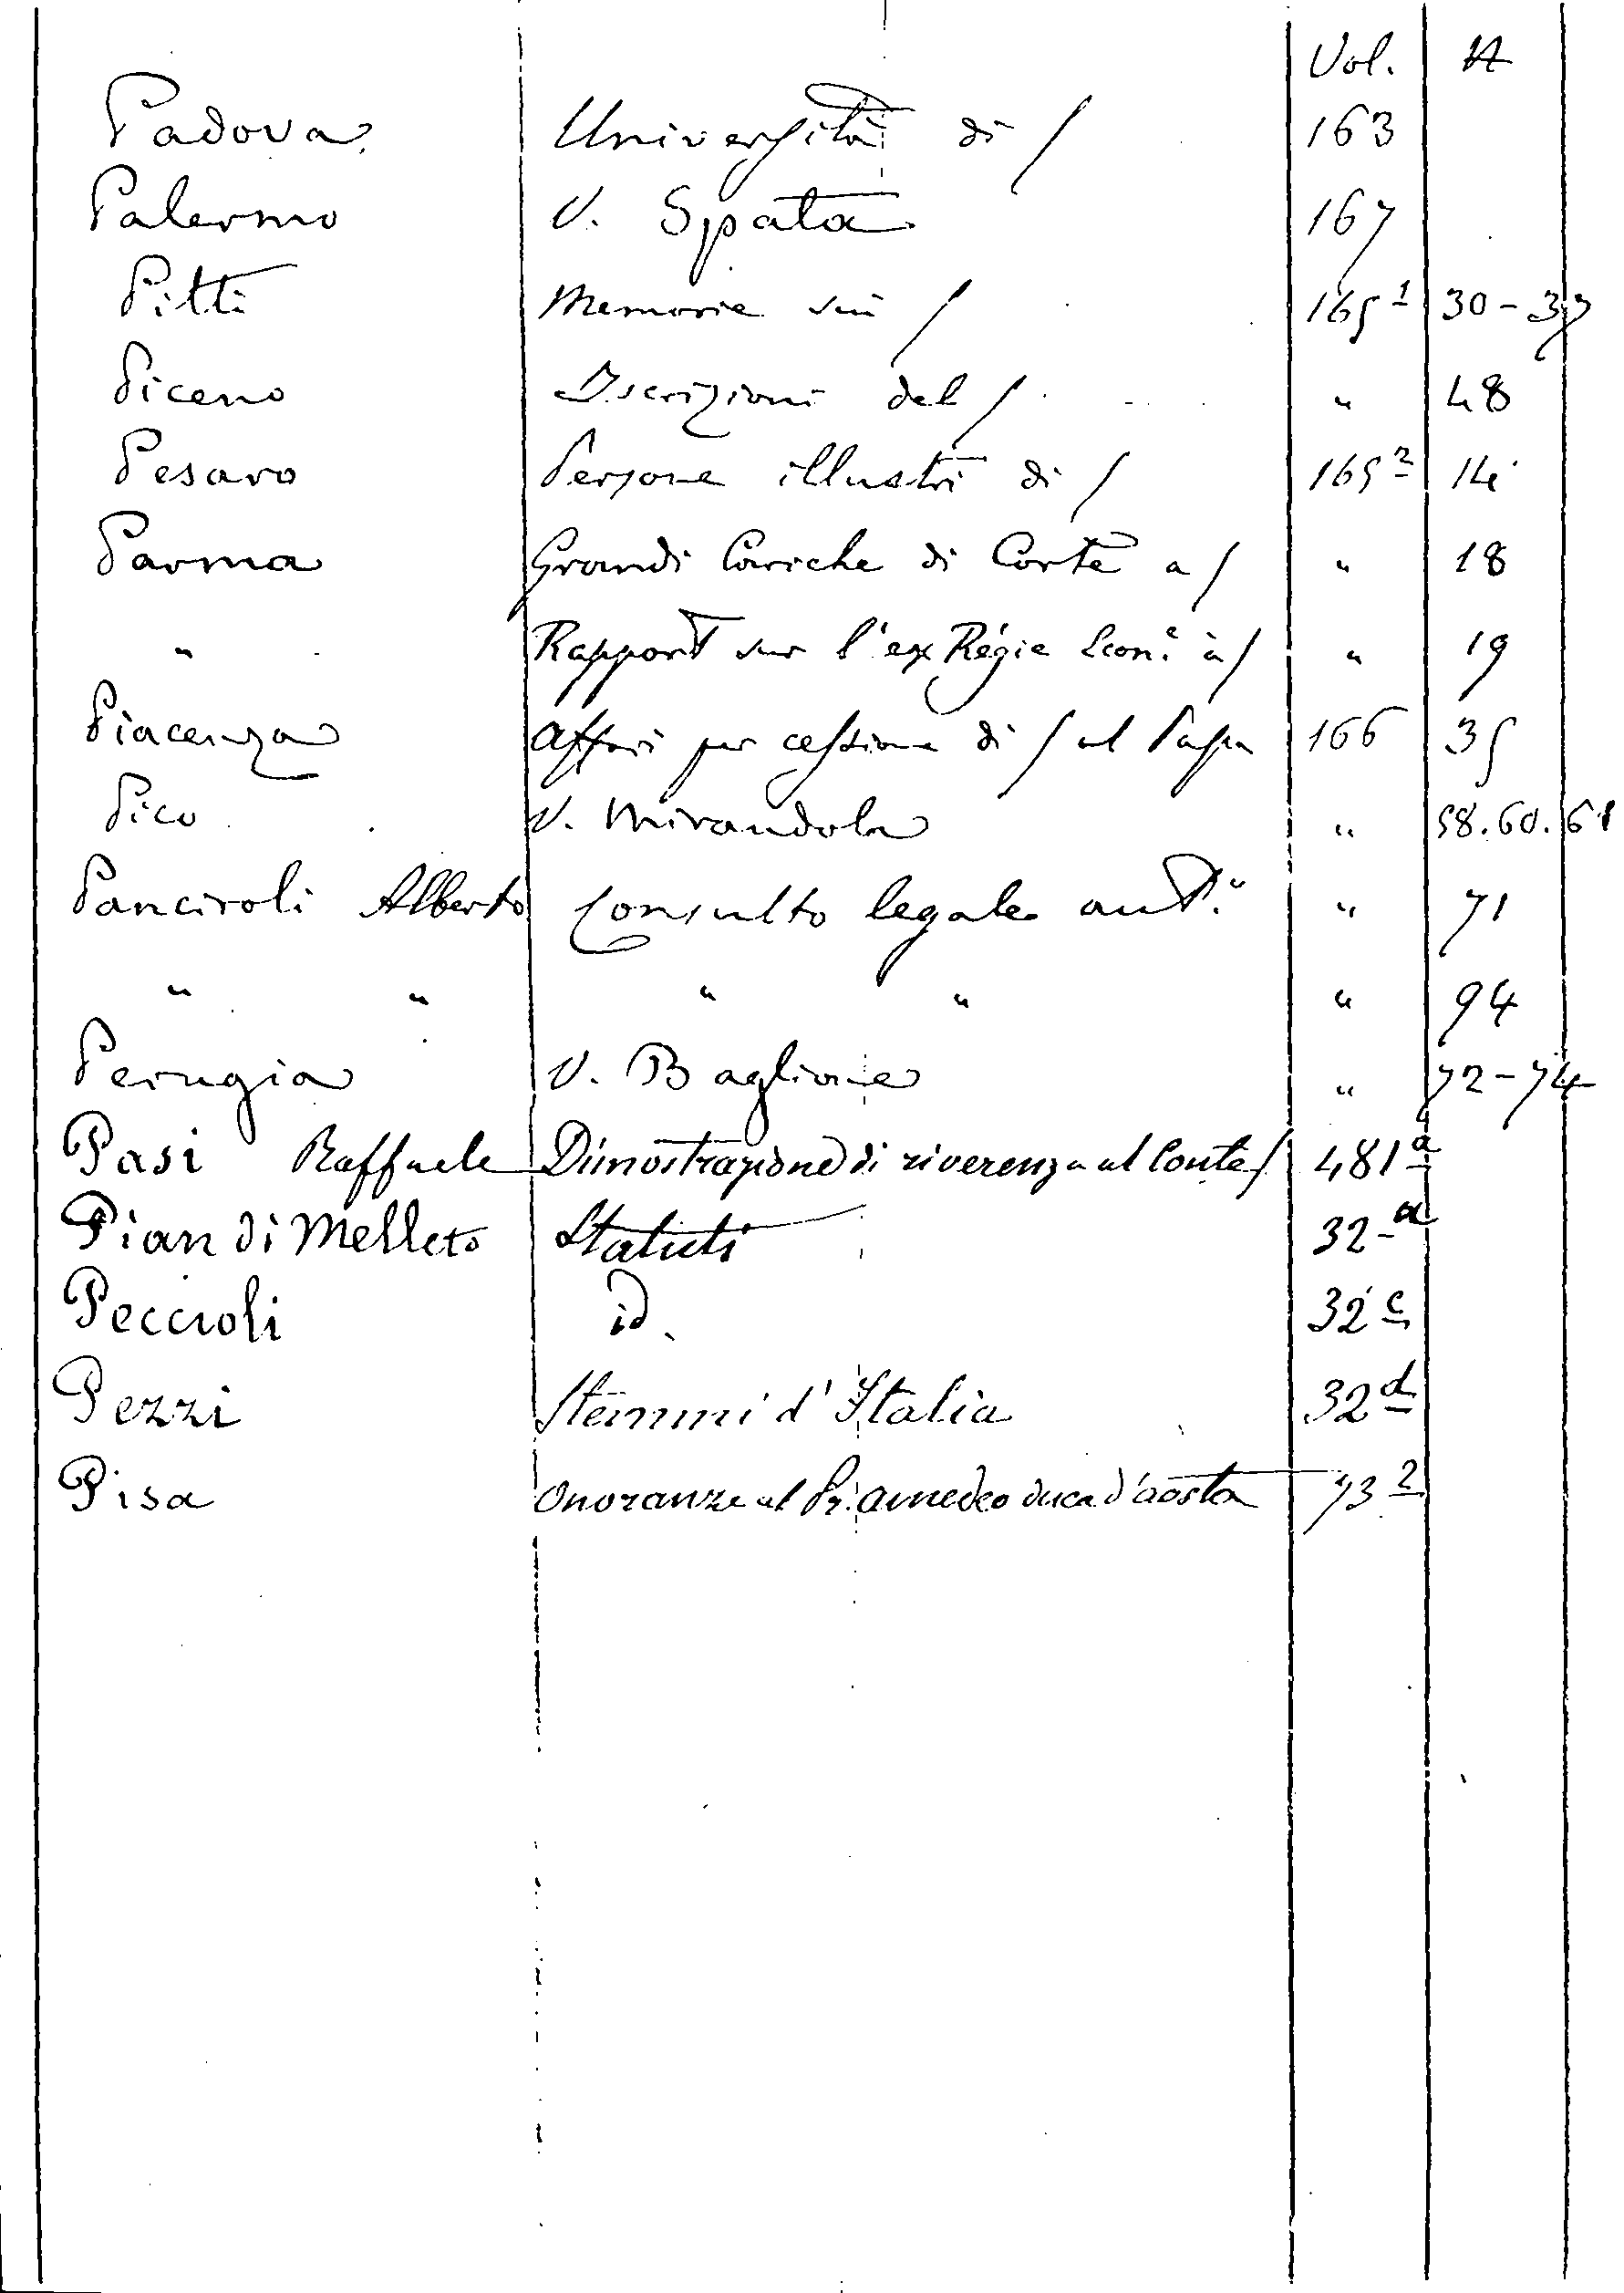 Vol. N
Padova Università di / 163
Palermo V. Spata 167
Pitti Memorie sui / 165 1 30-37
Piceno Iscrizioni del / " 48
Pesaro Persone illustri di / 165 2 14
Parma Grandi Cariche di Corte a / " 18
" Rapport sur l'ex Régie Econ.e à / " 19
Piacenza Affari per cessione di / al Papa 166 35
Pico V. Mirandola " 58.60.61
Panciroli Alberto Consulto legale " 71
" " " " " 94
Perugia V. Baglione " 72-74
Pasi Raffaele Dimostrazione di riverenza al Conte / 481 a
Pian di Melleto Statuti 32 a
Peccioli id. 32 c
Pezzi Stemmi d'Italia 32 d
Pisa Onoranze al Pr. Amedeo duca d'aosta 73 2